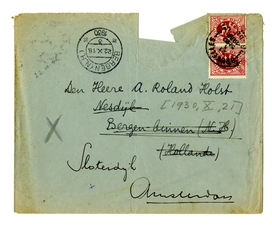 BERGEN (N.H.)
Den Heere A. Roland Holst
Nesdijk [1930, X, 21]
Bergen-binnen (N.H)
(Holland)
Sloterdijk
Amsterdam